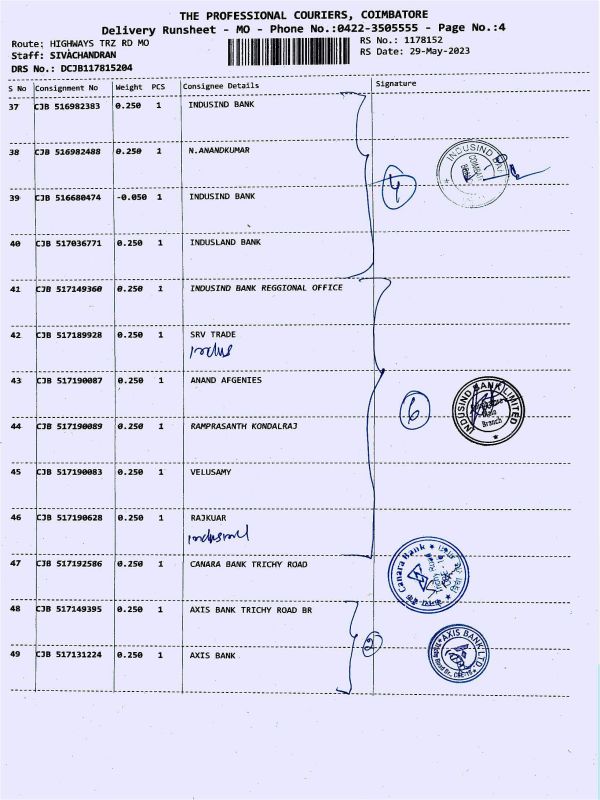 THE PROFESSIONAL COURIERS, COIMBATORE
Delivery Runsheet - MO - Phone No.:0422-3505555 - Page No.:4
Route: HIGHWAYS TRZ RD MO
RS No.: 1178152
Staff: SIVACHANDRAN
RS Date: 29-May-2023
DRS No.: DCJB117815204
S No Consignment No Weight PCS Consignee Details Signature
37 CJB 516982383 0.250 1 INDUSIND BANK
38 CJB 516982488 0.250 1 N.ANANDKUMAR
INDUSIND BANK
4
39 CJB 516680474 -0.050 1 INDUSIND BANK
40 CJB 517036771 0.250 1 INDUSLAND BANK
41 CJB 517149360 0.250 1 INDUSIND BANK REGGIONAL OFFICE
42 CJB 517189928 0.250 1 SRV TRADE
Indus
43 CJB 517190087 0.250 1 ANAND AFGENIES
INDUSIND BANK LIMITED
Branch
6
44 CJB 517190089 0.250 1 RAMPRASANTH KONDALRAJ
45 CJB 517190083 0.250 1 VELUSAMY
46 CJB 517190628 0.250 1 RAJKUAR
Indusind
47 CJB 517192586 0.250 1 CANARA BANK TRICHY ROAD
Canara Bank
48 CJB 517149395 0.250 1 AXIS BANK TRICHY ROAD BR
2
AXIS BANK LTD.
49 CJB 517131224 0.250 1 AXIS BANK